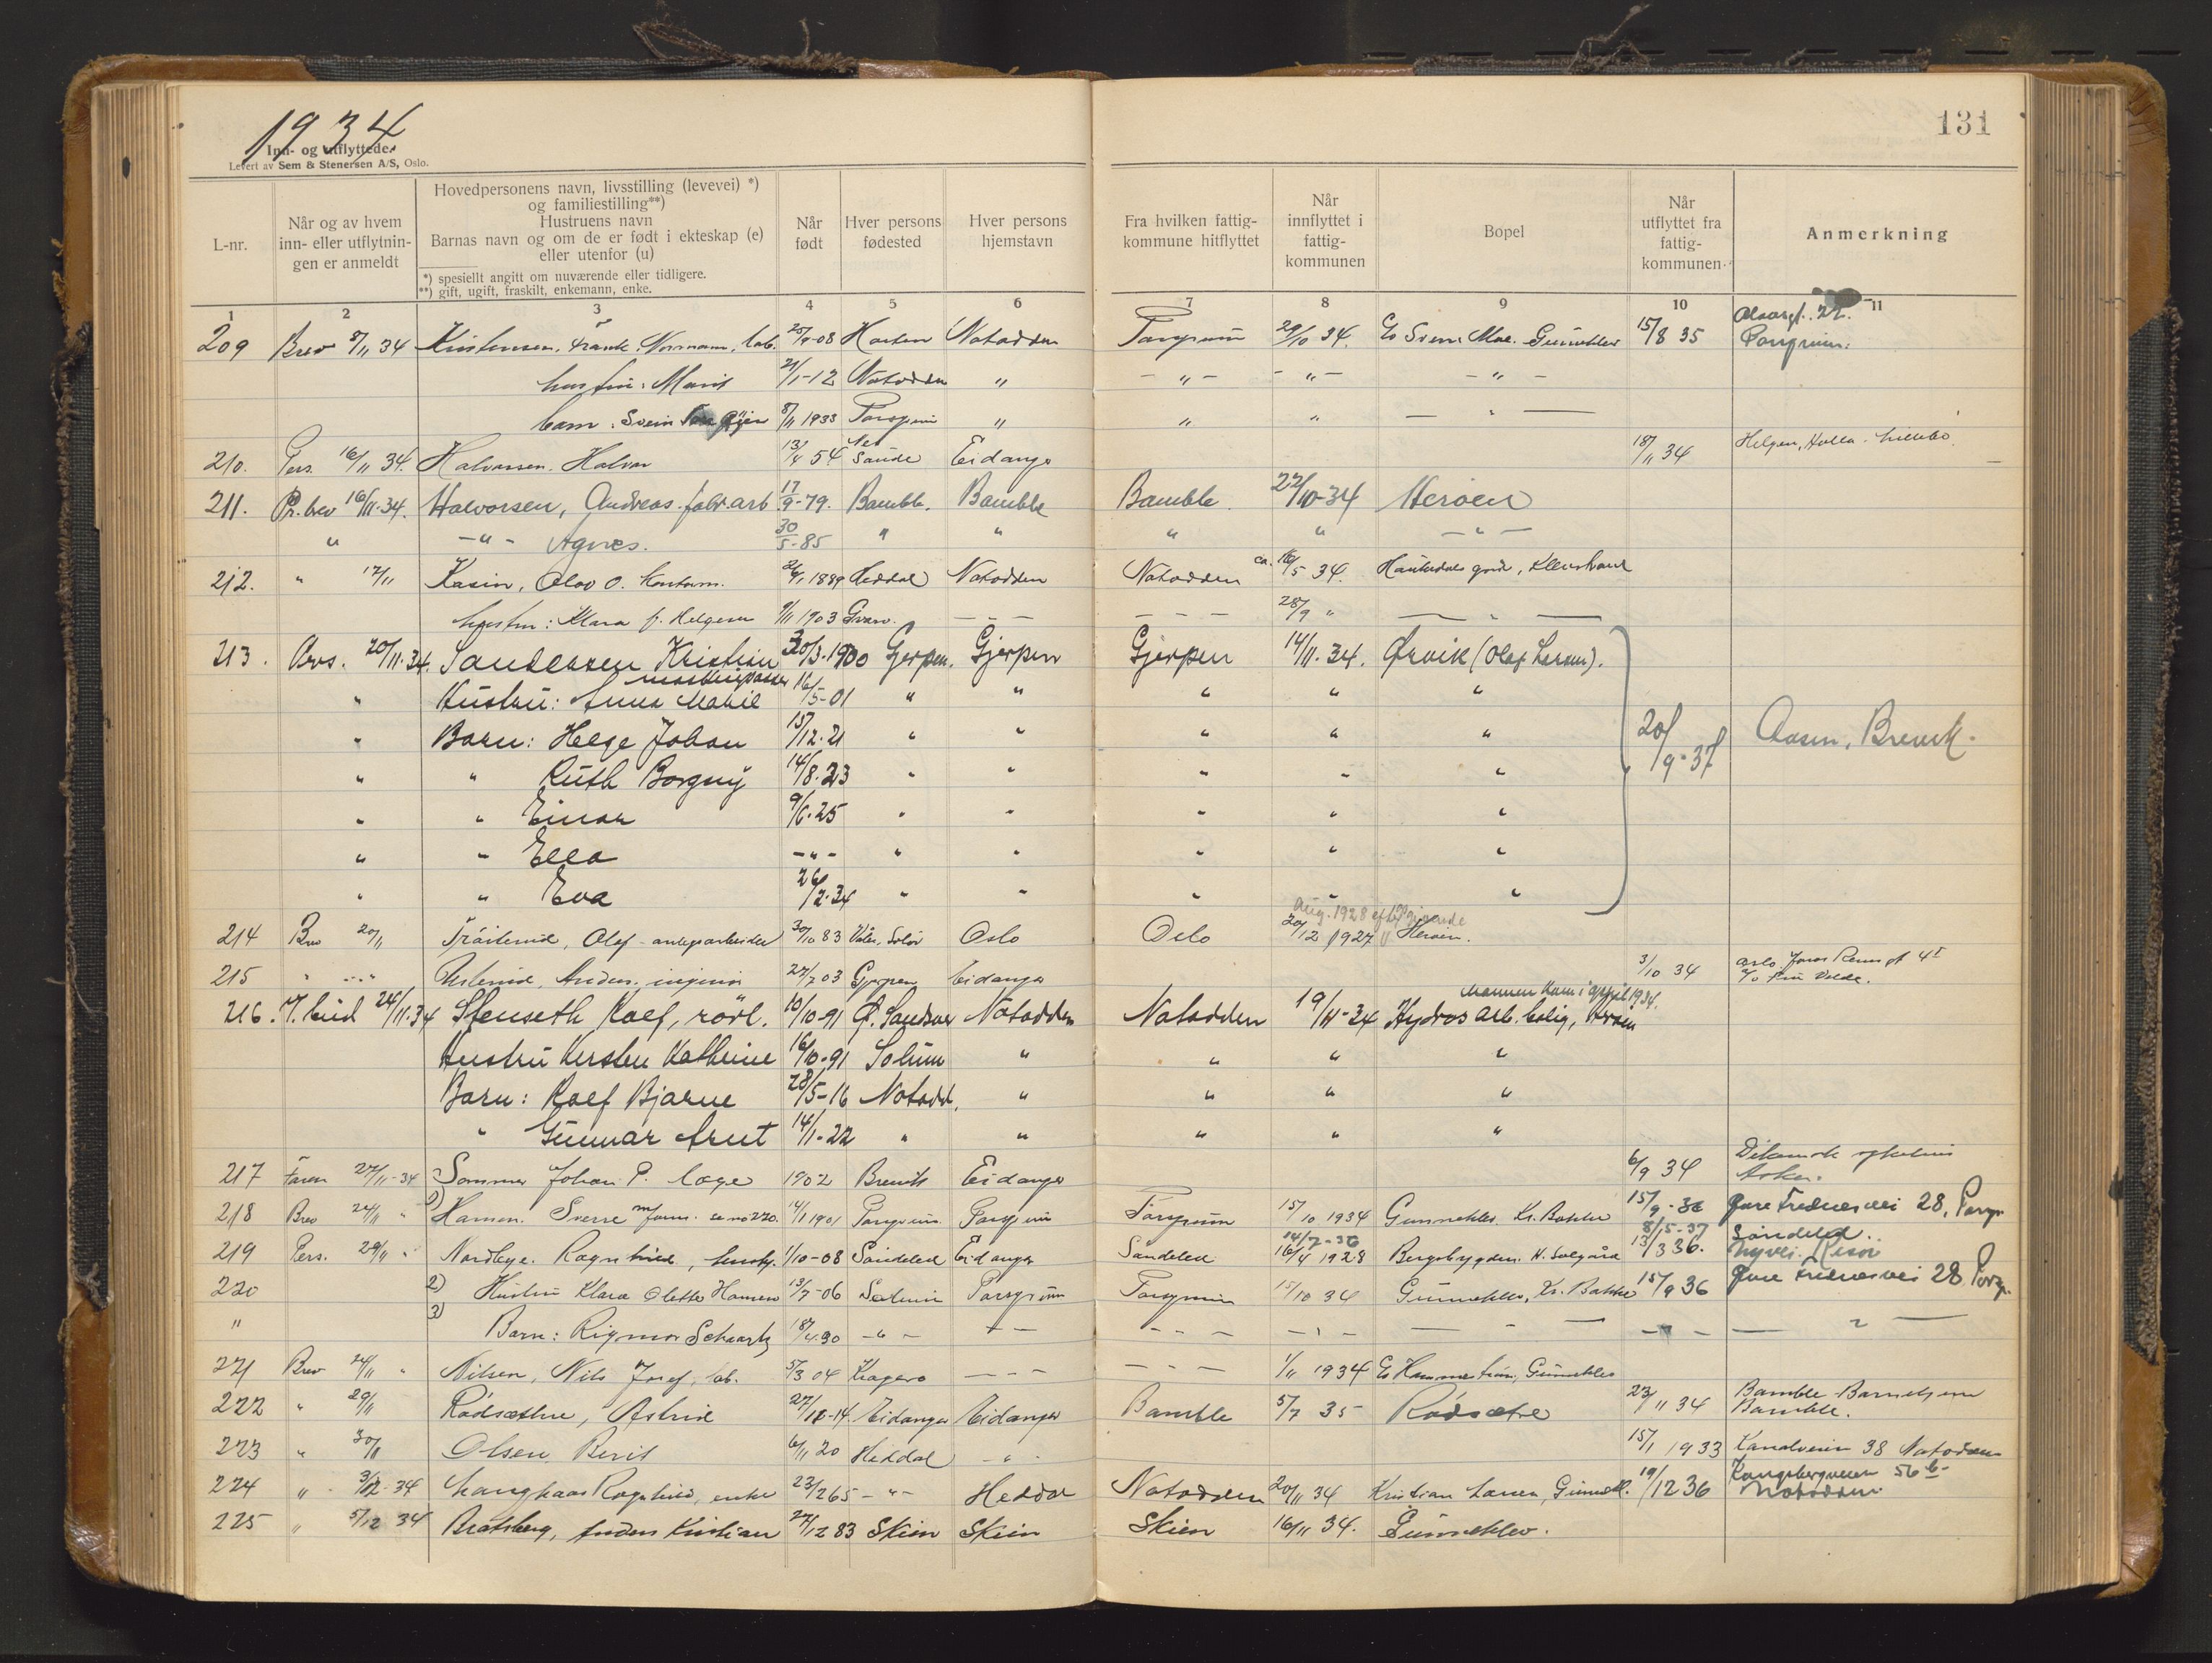 1934
Inn- og utflyttede.
Levert av Sem & Stenersen A/S, Oslo.
131
L-nr.
Når og av hvem inn- eller utflytningen er anmeldt
Hovedpersonens navn, livsstilling (levevei) *) og familiestilling**)
Hustruens navn
Barnas navn og om de er født i ekteskap (e) eller utenfor (u)
*) spesiellt angitt om nuværende eller tidligere.
**) gift, ugift, fraskilt, enkemann, enke.
Når født
Hver persons fødested
Hver persons hjemstavn
Fra hvilken fattigkommune hitflyttet
Når innflyttet i fattigkommunen
Bopel
Når utflyttet fra fattigkommunen
Anmerkning
1 2 3 4 5 6 7 8 9 10 11
209 Brev 5/11 34 Kristensen, Frank Normann, lab. 25/9-08 Horten Notodden Porsgrunn 29/10 34. 15/8 35 Porsgrunn.
hustru: Marit 21/1-12 Notodden " - " - - " - - " -
barn: Svein 8/11 1933 Porsgrunn " " " "
210. Pers. 16/11 34. Halvorsen, Halvor 13/4 54 Sande Eidanger 18/11 34 Helgen, Holla
211. Pr. brev 16/11.34. Halvorsen, Andreas. fabr.arb 17/9-79. Bamble. Bamble Bamble. 22/10-34 Herøen
" - " - Agnes. 30/5-85 " " " " - " -
212. " 17/11 Kasin, Olav O. 26/1 1889 Heddal Notodden Notodden ca. 16/5 34.
hustru: Klara f. Helgesen 9/11 1903 Gvarv. 28/9 "
213. Pers. 20/11.34. Sandersen Kristian 30/3.1900 Gjerpen. Gjerpen Gjerpen 14/11.34. Ørvik (Olaf Larsen).
maskinpasser
" Hustru: Anna Marie 16/5-01 " " " " "
" Barn: Helge Johan 15/12.21 " " " " " 20/9-37 Aasen, Brevik.
" " Ruth Borgny 14/8.23 " " " " "
" " Einar 9/6.25 " " " " "
" " Ella - " - " " " " "
" " Eva 26/2.34 " " " " "
Aug. 1928
214 Brev 20/11 Olaf - anlegsarbeider 30/10 83 Våler, Solør Oslo Oslo 20/12 1927 Herøen.
215 " - " - Anders. ingeniør 27/7 03 Gjerpen Eidanger 3/10 34 Oslo
216. 24/11.34 Stenseth Rolf, rørl. 10/10-91 Ø. Sandsvær Notodden Notodden 19/11-34 Hydros arb.bolig, Herøen
Mannen kom i april 1934.
Hustru Kirsten Kathrine 16/10-91 Solum " " " "
Barn: Rolf Bjarne 28/5-16 Notodd. " " " "
" Gunnar Arnt 14/1-22 " " " " "
217 27/11-34 Sommer Johan P. læge 1902 Brevik Eidanger 6/9 34 Dikemark sykehus Asker.
218 Brev 24/11 " 1) Hansen. Sverre se no 220. 14/1 1901 Porsgrunn Porsgrunn Porsgrunn 15/10 1934 Gunneklev. Kr. Bakke 15/9-36 Øvre Frednesvei 28, Porsgr
219 Pers. 29/11 " Nordbye. Ragnhild, 1/10-08 Søndeled Eidanger Søndeled 16/4 1928 Bergsbygden. N. Solgård 13/3 36.
14/7-36 8/5-37 Søndeled.
220 2) Hustru Klara Olette Hansen 13/7-06 Solum Porsgrunn Porsgrunn 15/10 34 Gunneklev, Kr. Bakke 15/9 36 Øvre Frednesvei 28 Porsg.
" 3) Barn: Rigmor 18/4.30 - " -
221 Brev 24/11 " Nilsen, Nils Josef, lab. 5/3 04 Kragerø 1/11 1934
222 " 29/11 Rødsæthre, Astrid Eidanger Eidanger Bamble 5/7 35 Rødsætre 23/11 34 Bamble Barnehjem Bamble.
223 " 30/11 Olsen Berit 6/11 20 Heddal - " - 15/1 1933 Kanalveien 38 Notodden
224 " 3/12-34 Langhaas Ragnhild, enke 23/2 65 - " - Heddal Notodden 20/11 34 Kristian Larsen, Gunnekl. 19/12 36 Kongsbergveien 56 b Notodden.
225 " 5/12 34 Bratsberg, Anders Kristian 27/12 83 Skien Skien Skien 16/11 34. Gunneklev.